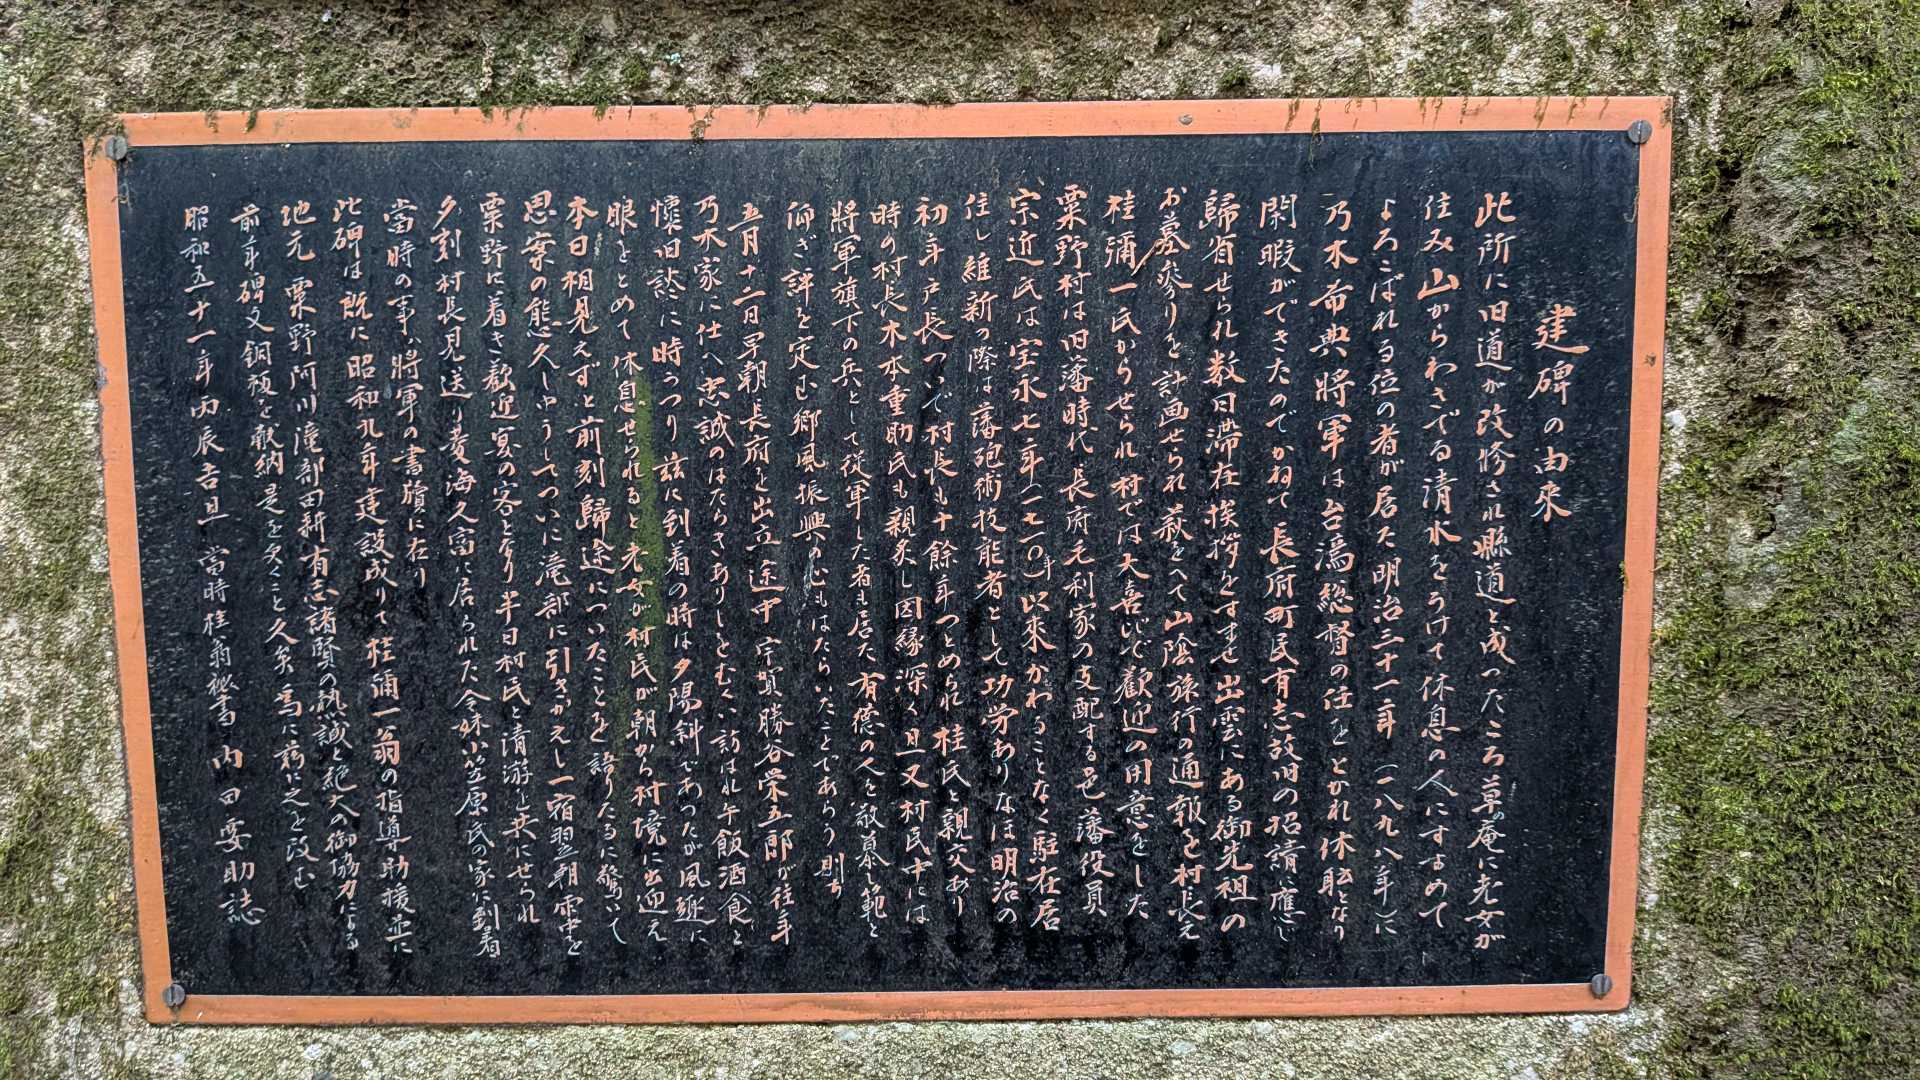 建碑の由來
此所に旧道が改修され縣道と成ったころ草の庵に老女が
住み山からわきでる清水をうけて休息の人にすすめて
よろこばれる位の者が居た明治三十一年(一八九八年)に
乃木希典將軍は台湾総督の任をとかれ休職となり
閑暇ができたのでかねて長府町民有志故旧の招請應じ
歸省せられ数日滞在挨拶をすませ出雲にある御先祖の
お墓参りを計画せられ萩をへて山陰旅行の通報を村長え
桂彌一氏からせられ村では大喜びで歓迎の用意をした
粟野村は旧藩時代長府毛利家の支配する邑藩役員
宗近氏は宝永七年(一七一〇年)以来かわることなく駐在居
住し維新の際は藩砲術技能者として功労ありなほ明治の
初年戸長ついで村長も十餘年つとめられ桂氏と親交あり
時の村長木本重助氏も親炙し因縁深く且又村民中には
將軍旗下の兵として従軍した者も居た有徳の人を敬慕し範と
仰ぎ評を定む郷風振興の心もはたらいたことであらう則ち
五月十二日早朝長府を出立途中宇賀勝谷栄五郎が往年
乃木家に仕へ忠誠のはたらきありしをむくい訪はれ午飯酒食と
懐旧談に時うつり茲に到着の時は夕陽斜であったが風
眼をとめて休息せられると老女が村民が朝から村境に出迎え
本日相見えずと前刻歸途についたことを語りたるに驚いて
思案の態久しゅうしてついに滝部に引きかえし一宿翌朝雫中を
粟野に着き歓迎宴の客となり半日村民と清游を共にせられ
夕刻村長見送り菱海久富に居られた令妹小笠原氏の家に到着
當時の事ハ將軍の書牘に在り
此碑は既に昭和九年建設成りて桂彌一翁の指導助援並に
地元粟野阿川滝部田耕有志諸賢の熱誠と絶大の御協力による
前年碑文銅額を献納是を欠くこと久矣爲に新に之を改む
昭和五十一年丙辰吉旦 當時桂翁秘書 内田要助誌